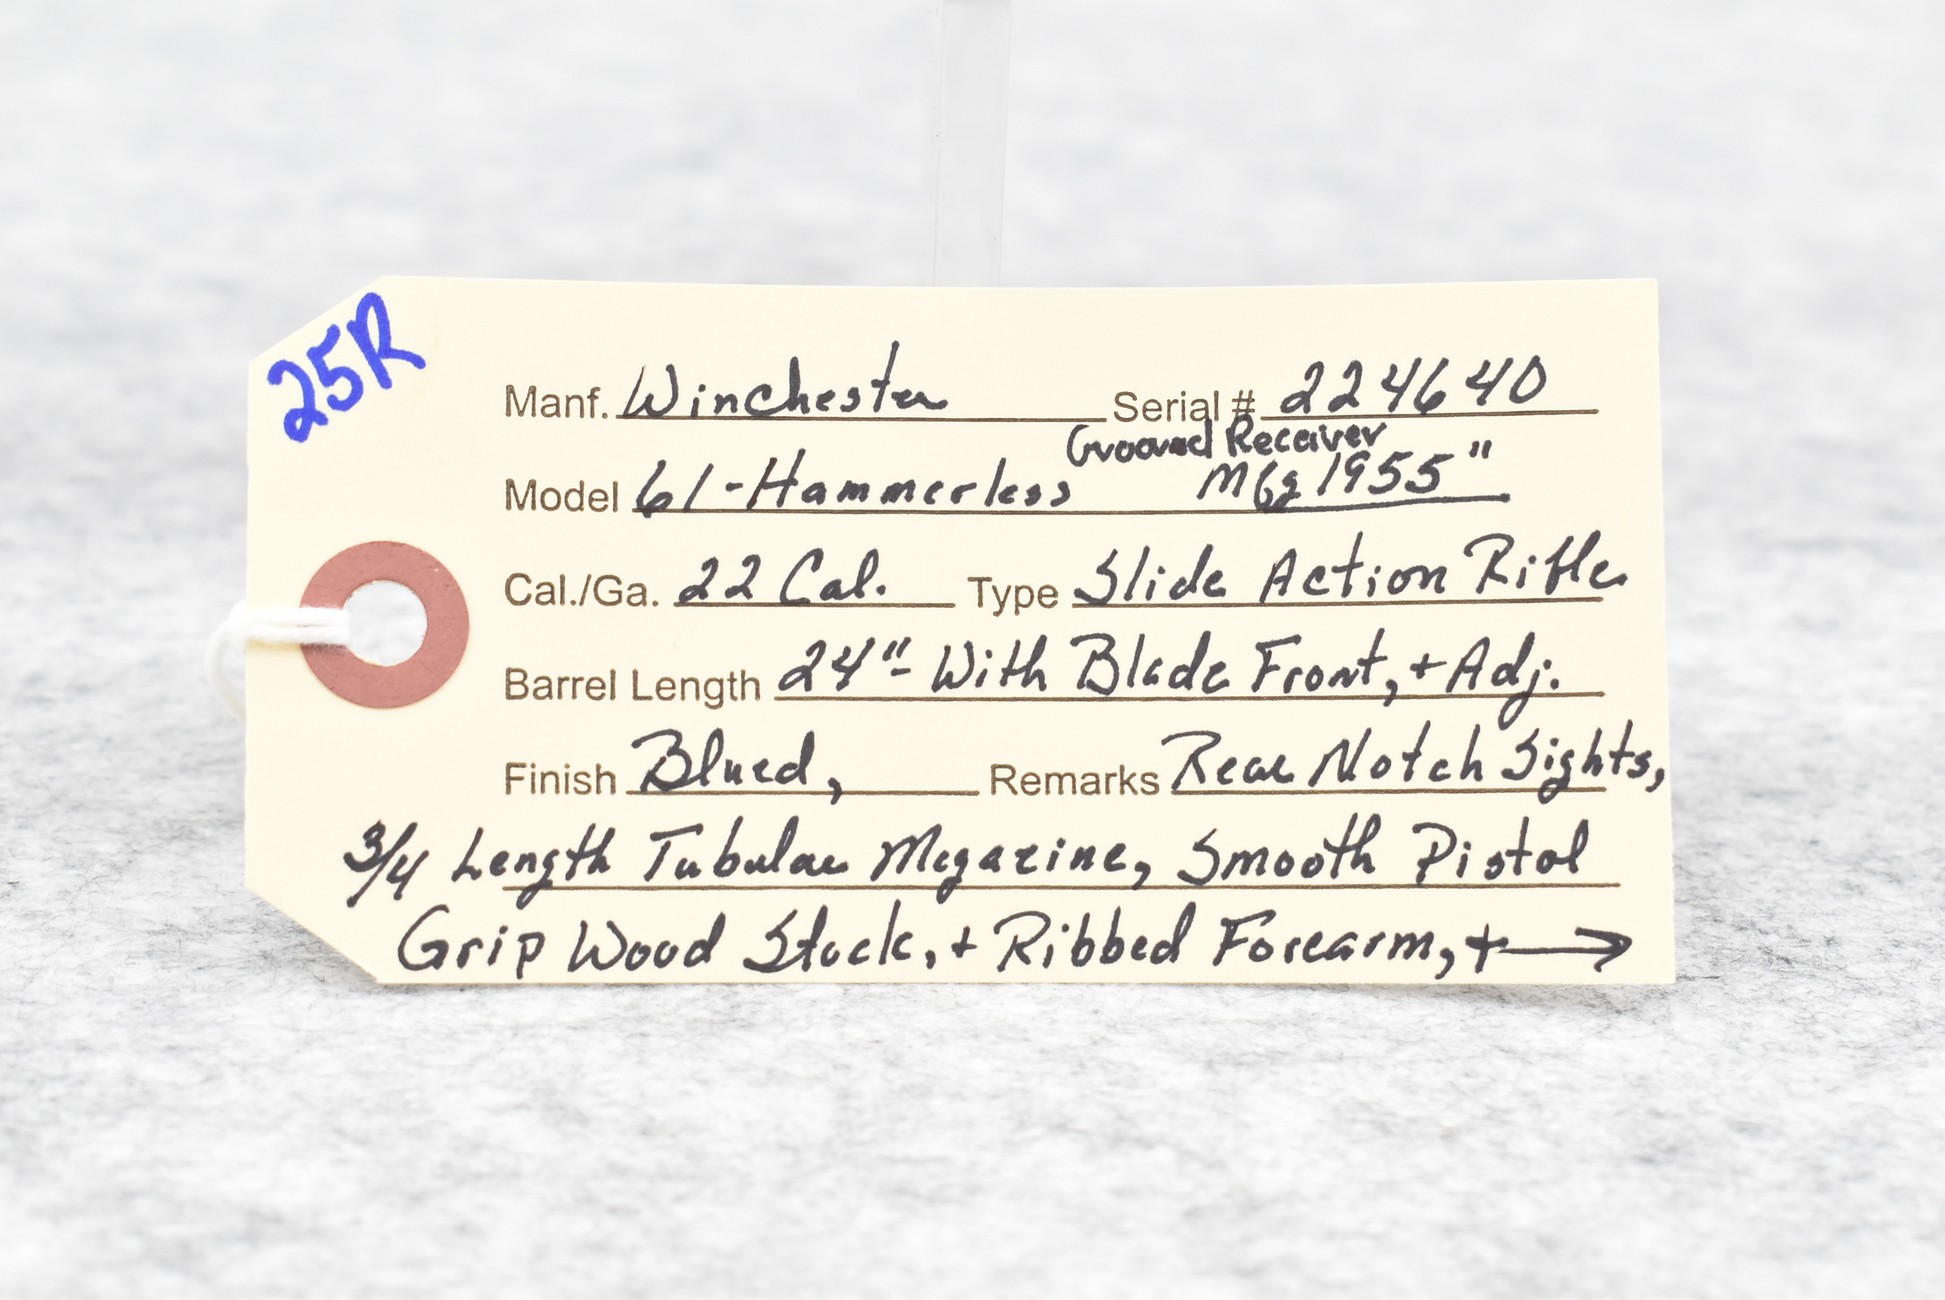 25R
Manf. Winchester Serial # 224640
Grooved Receiver
Model 61-Hammerless Mfg 1955"
Cal./Ga. 22 Cal. Type Slide Action Rifle
Barrel Length 24"- With Blade Front, + Adj.
Finish Blued, Remarks Rear Notch Sights,
3/4 Length Tubular Magazine, Smooth Pistol
Grip Wood Stock, + Ribbed Forearm, + →